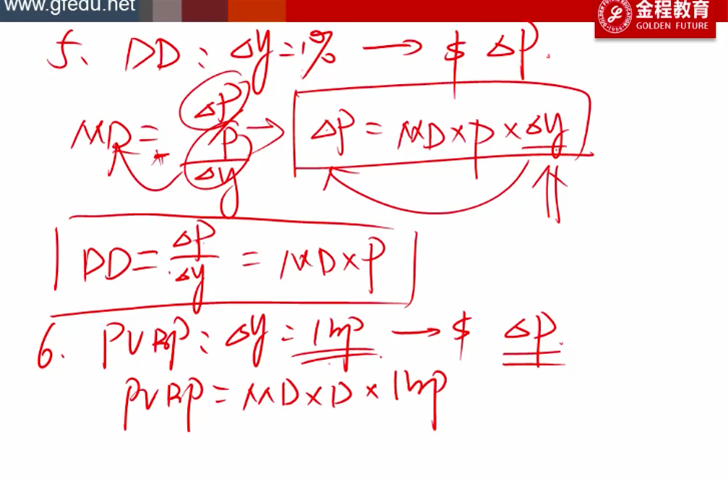 www.gfedu.net
金程教育
GOLDEN FUTURE
5、 DD : Δy = 1% → $ ΔP.
MD = - ΔP/P / Δy → ΔP = MD × P × Δy
DD = ΔP/Δy = MD × P
6. PVBP : Δy = 1bp → $ ΔP.
PVBP = MD × P × 1bp